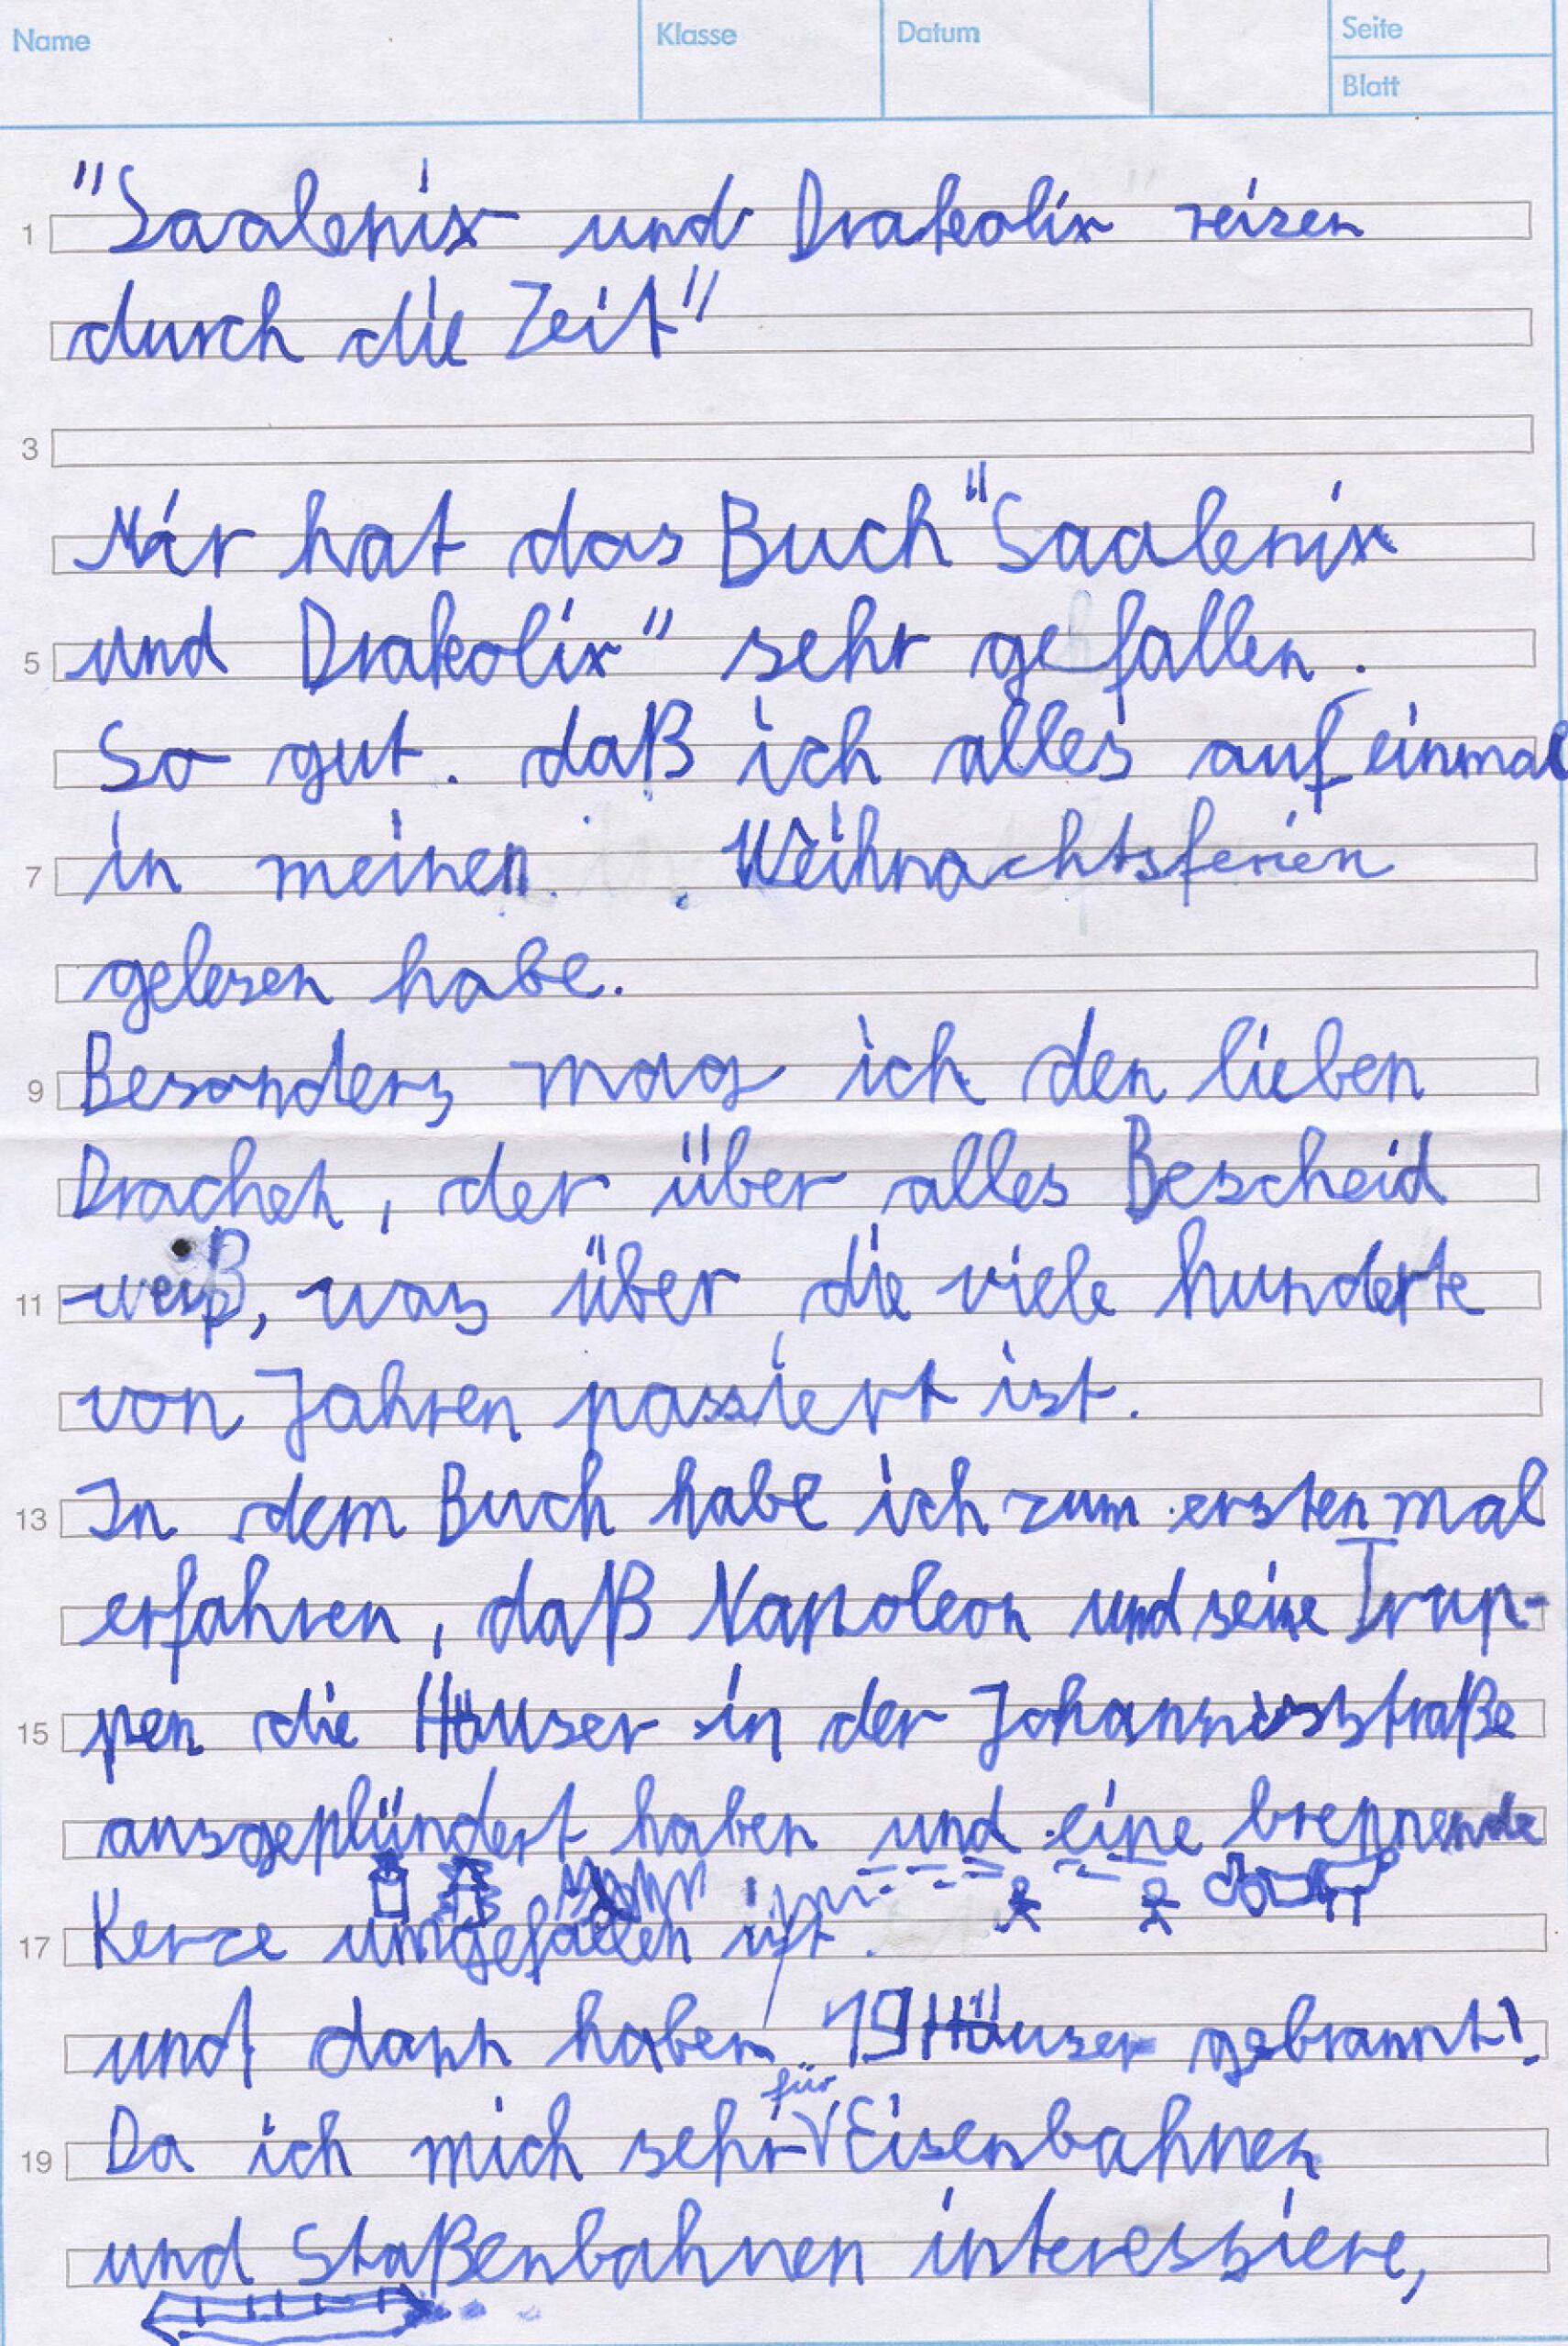 Name Klasse Datum Seite
Blatt
1 "Saalenix und Drakolix reisen
durch die Zeit"
3
Mir hat das Buch "Saalenix
5 und Drakolix" sehr gefallen.
So gut. daß ich alles auf einmal
7 in meinen Weihnachtsferien
gelesen habe.
9 Besonders mag ich den lieben
Drachen, der über alles Bescheid
11 weiß, was über die viele hunderte
von Jahren passiert ist.
13 In dem Buch habe ich zum ersten mal
erfahren, daß Napoleon und seine Trup-
15 pen die Häuser in der Johannisstraße
ausgeplündert haben und eine brennende
17 Kerze umgefallen ist.
und dann haben 19 Häuser gebrannt!
für
19 Da ich mich sehr Eisenbahnen
und Staßenbahnen interessiere,